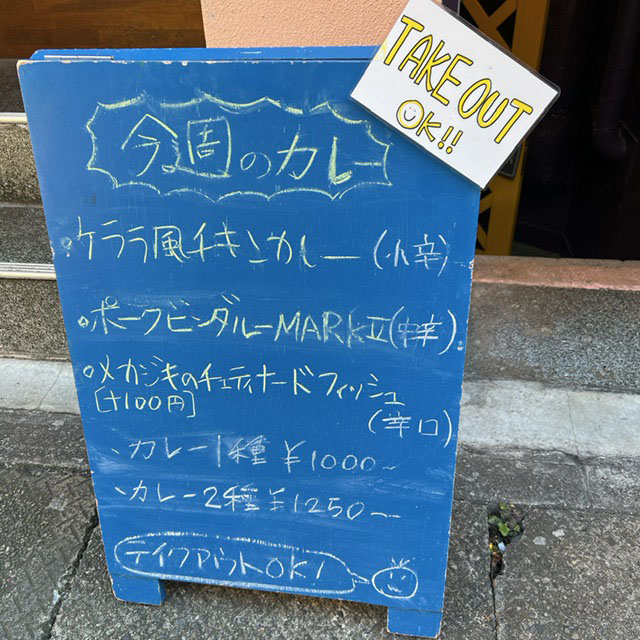 TAKE OUT
OK!!
今週のカレー
・ケララ風チキンカレー(小辛)
・ポークビンダルーMARKⅡ(中辛)
・メカジキのチェティナードフィッシュ
[+100円]
(辛口)
、カレー1種 ¥1000~
、カレー2種 ¥1250~
テイクアウトOK!